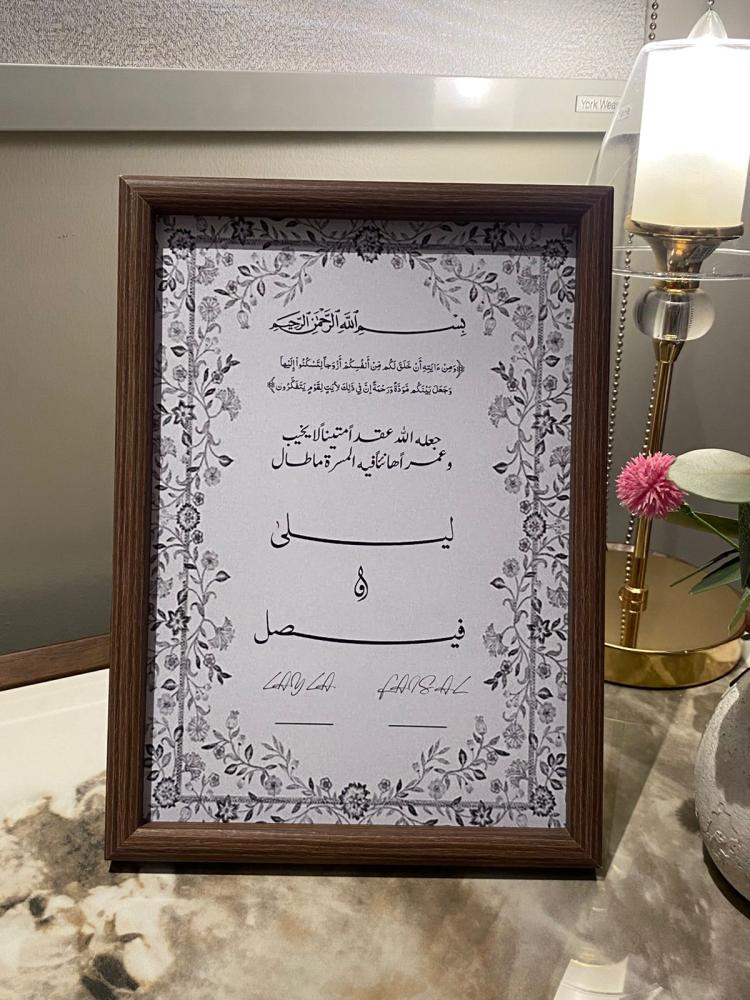 York Wea
بِسْمِ اللَّهِ الرَّحْمَٰنِ الرَّحِيمِ
﴿وَمِنْ ءَايَٰتِهِ أَنْ خَلَقَ لَكُم مِّنْ أَنفُسِكُمْ أَزْوَٰجاً لِّتَسْكُنُوا إِلَيْهَا
وَجَعَلَ بَيْنَكُم مَّوَدَّةً وَرَحْمَةً إِنَّ فِي ذَٰلِكَ لَأَيَٰتٍ لِّقَوْمٍ يَتَفَكَّرُون﴾
جعله الله عقداً متيناً لا يخيب
وعمراً هانئاً فيه المسرة ما طال
ليلى
و
فيصل
LAYLA FAISAL